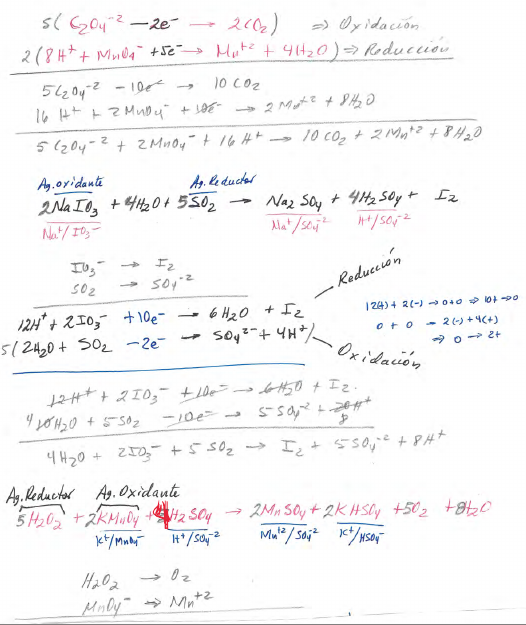 5(C₂O₄⁻² − 2e⁻ → 2CO₂) ⇒ Oxidación
2(8H⁺ + MnO₄⁻ + 5e⁻ → Mn⁺² + 4H₂O) ⇒ Reducción
5C₂O₄⁻² − 10e⁻ → 10CO₂
16H⁺ + 2MnO₄⁻ + 10e⁻ → 2Mn⁺² + 8H₂O
5C₂O₄⁻² + 2MnO₄⁻ + 16H⁺ → 10CO₂ + 2Mn⁺² + 8H₂O
Ag. oxidante Ag. Reductor
2NaIO₃ + 4H₂O + 5SO₂ → Na₂SO₄ + 4H₂SO₄ + I₂
Na⁺/IO₃⁻ Na⁺/SO₄⁻² H⁺/SO₄⁻²
IO₃⁻ → I₂
SO₂ → SO₄⁻²
Reducción
12H⁺ + 2IO₃⁻ + 10e⁻ → 6H₂O + I₂
5(2H₂O + SO₂ − 2e⁻ → SO₄²⁻ + 4H⁺)
Oxidación
12(+) + 2(−) → 0+0 ⇒ 10+ → 0
0 + 0 → 2(−) + 4(+)
⇒ 0 → 2+
12H⁺ + 2IO₃⁻ + 10e⁻ → 6H₂O + I₂
4 10H₂O + 5SO₂ − 10e⁻ → 5SO₄⁻² + 20H⁺
8
4H₂O + 2IO₃⁻ + 5SO₂ → I₂ + 5SO₄⁻² + 8H⁺
Ag. Reductor Ag. Oxidante
5H₂O₂ + 2KMnO₄ + 4H₂SO₄ → 2MnSO₄ + 2KHSO₄ + 5O₂ + 8H₂O
K⁺/MnO₄⁻ H⁺/SO₄⁻² Mn⁺²/SO₄⁻² K⁺/HSO₄⁻
H₂O₂ → O₂
MnO₄⁻ → Mn⁺²